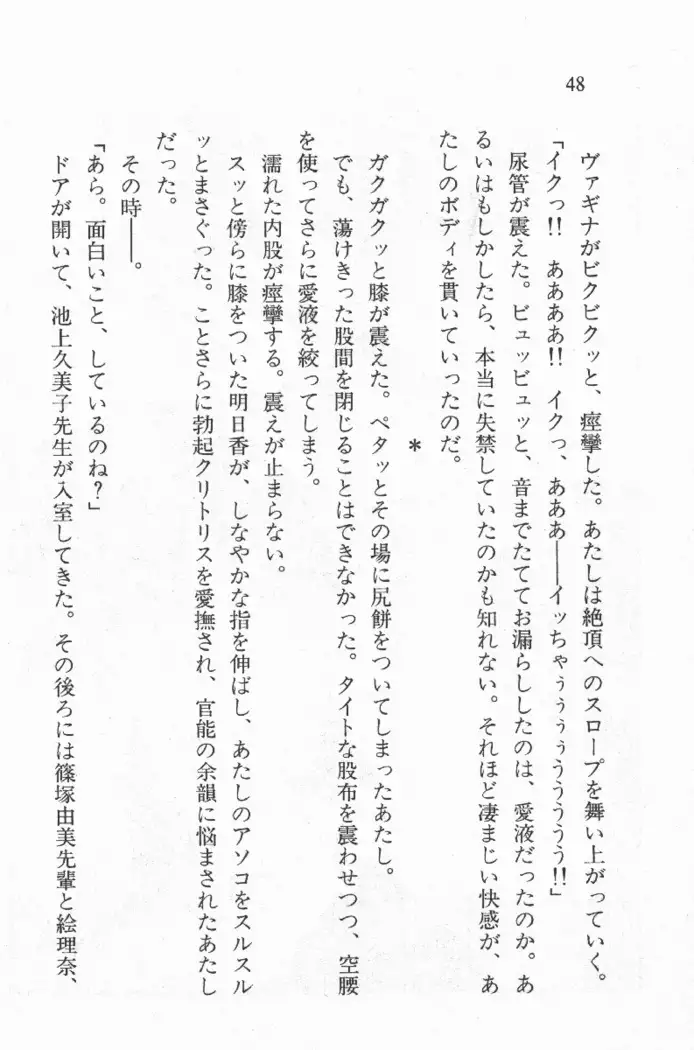 48
ヴァギナがビクビクッと、痙攣した。あたしは絶頂へのスロープを舞い上がっていく。
「イクっ!! ああああ!! イクっ、あああ――イッちゃぅぅぅぅううううう!!」
尿管が震えた。ビュッビュッと、音までたててお漏らししたのは、愛液だったのか。あ
るいはもしかしたら、本当に失禁していたのかも知れない。それほど凄まじい快感が、あ
たしのボディを貫いていったのだ。
*
ガクガクッと膝が震えた。ペタッとその場に尻餅をついてしまったあたし。
でも、蕩けきった股間を閉じることはできなかった。タイトな股布を震わせつつ、空腰
を使ってさらに愛液を絞ってしまう。
濡れた内股が痙攣する。震えが止まらない。
スッと傍らに膝をついた明日香が、しなやかな指を伸ばし、あたしのアソコをスルスル
ッとまさぐった。ことさらに勃起クリトリスを愛撫され、官能の余韻に悩まされたあたし
だった。
その時――。
「あら。面白いこと、しているのね?」
ドアが開いて、池上久美子先生が入室してきた。その後ろには篠塚由美先輩と絵理奈、